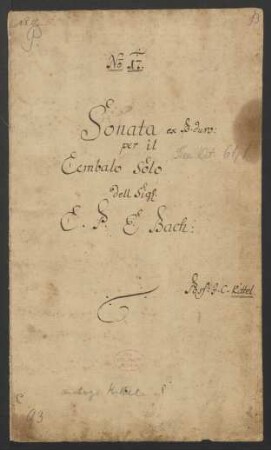 No 1.
Sonata ex B. duro.
per il
Cembalo Solo
dell Sigl.
C. P. E. Bach:
Poss: J. C. Kittel
93